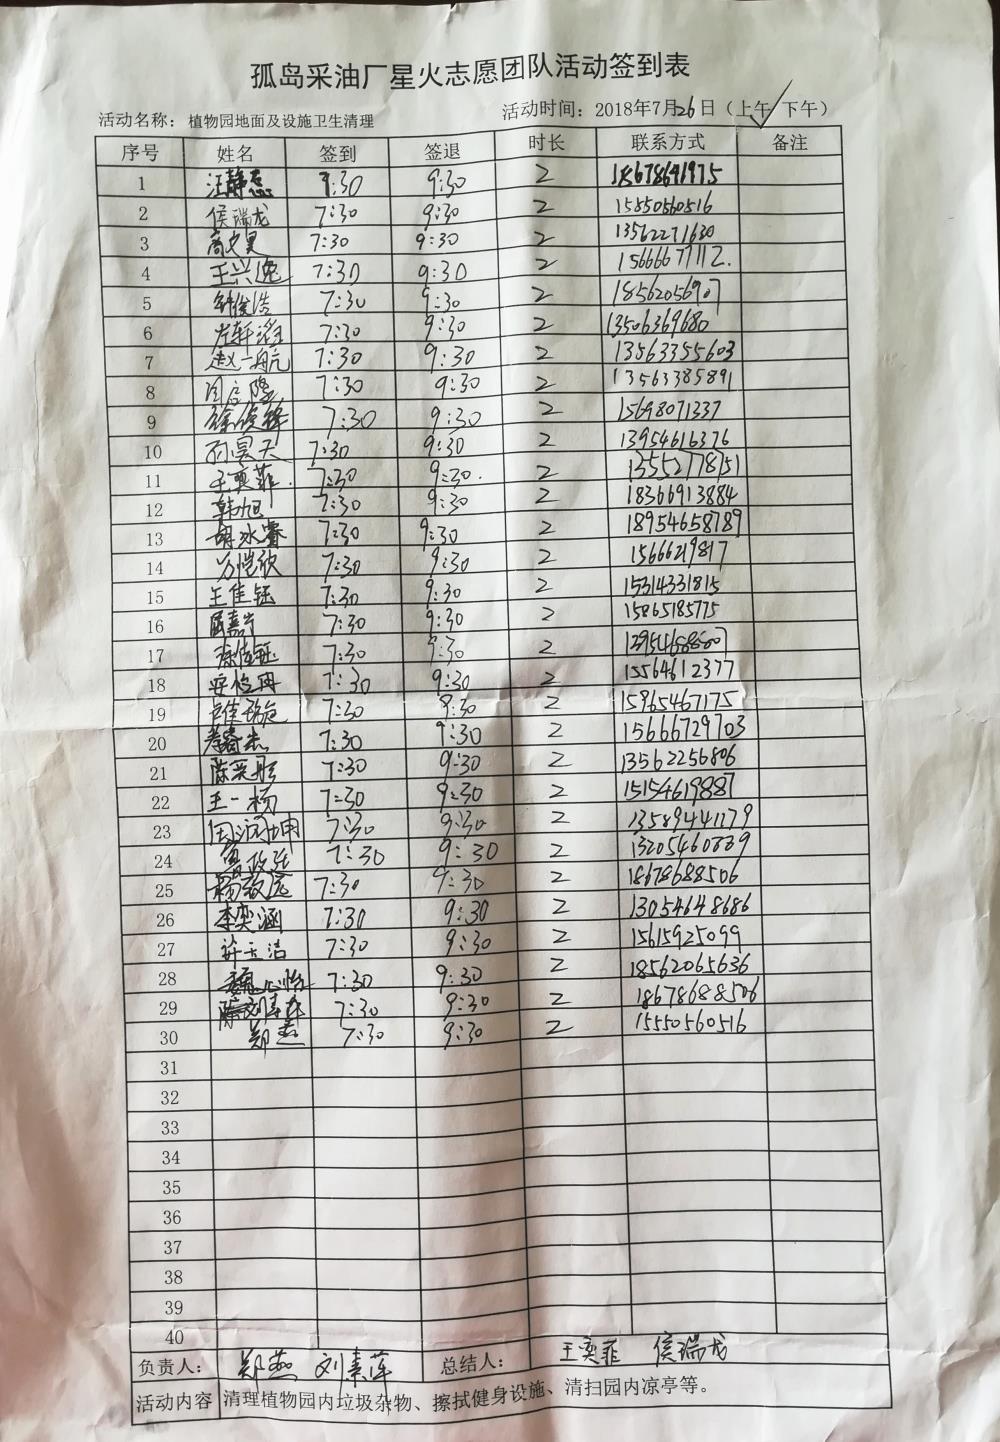 孤岛采油厂星火志愿团队活动签到表
活动名称： 植物园地面及设施卫生清理 活动时间：2018年7月26日（上午/下午）
序号 姓名 签到 签退 时长 联系方式 备注
1 汪静 7:30 9:30 2 18678641975
2 侯瑞龙 7:30 9:30 2 15550560516
3 高文昊 7:30 9:30 2 13562271630
4 王兴逸 7:30 9:30 2 15666677112.
5 俊浩 7:30 9:30 2 18562056907
6 轩 7:30 9:30 2 13506369680
7 赵一航 7:30 9:30 2 13563355603
8 7:30 9:30 2 13563385891
9 徐俊 7:30 9:30 2 15698071337
10 孙昊天 7:30 9:30 2 13954616376
11 王奕菲. 7:30 9:30. 2 13552778751
12 韩旭 7:30 9:30 2 18366913884
13 胡冰睿 7:30 9:30 2 18954658789
14 万恺欣 7:30 9:30 2 15666219817
15 王佳钰 7:30 9:30 2 15314331815
16 周嘉 7:30 9:30 2 15865185775
17 佳钰 7:30 9:30 2
18 安怡冉 7:30 9:30 2 15564612377
19 佳 7:30 9:30 2 15965467175
20 7:30 9:30 2 15666729703
21 陈奕彤 7:30 9:30 2 13562256806
22 王一杨 7:30 9:30 2 15154619887
23 坤 7:30 9:30 2 13589441179
24 7:30 9:30 2 13205460839
25 杨 7:30 9:30 2 18678688506
26 李奕涵 7:30 9:30 2 13054648686
27 许玉洁 7:30 9:30 2 15615925099
28 魏心怡 7:30 9:30 2 18562065636
29 刘素萍 7:30 9:30 2 18678688506
30 郑燕 7:30 9:30 2 15550560516
31
32
33
34
35
36
37
38
39
40
负责人： 郑燕 刘素萍 总结人： 王奕菲 侯瑞龙
活动内容 清理植物园内垃圾杂物、擦拭健身设施、清扫园内凉亭等。